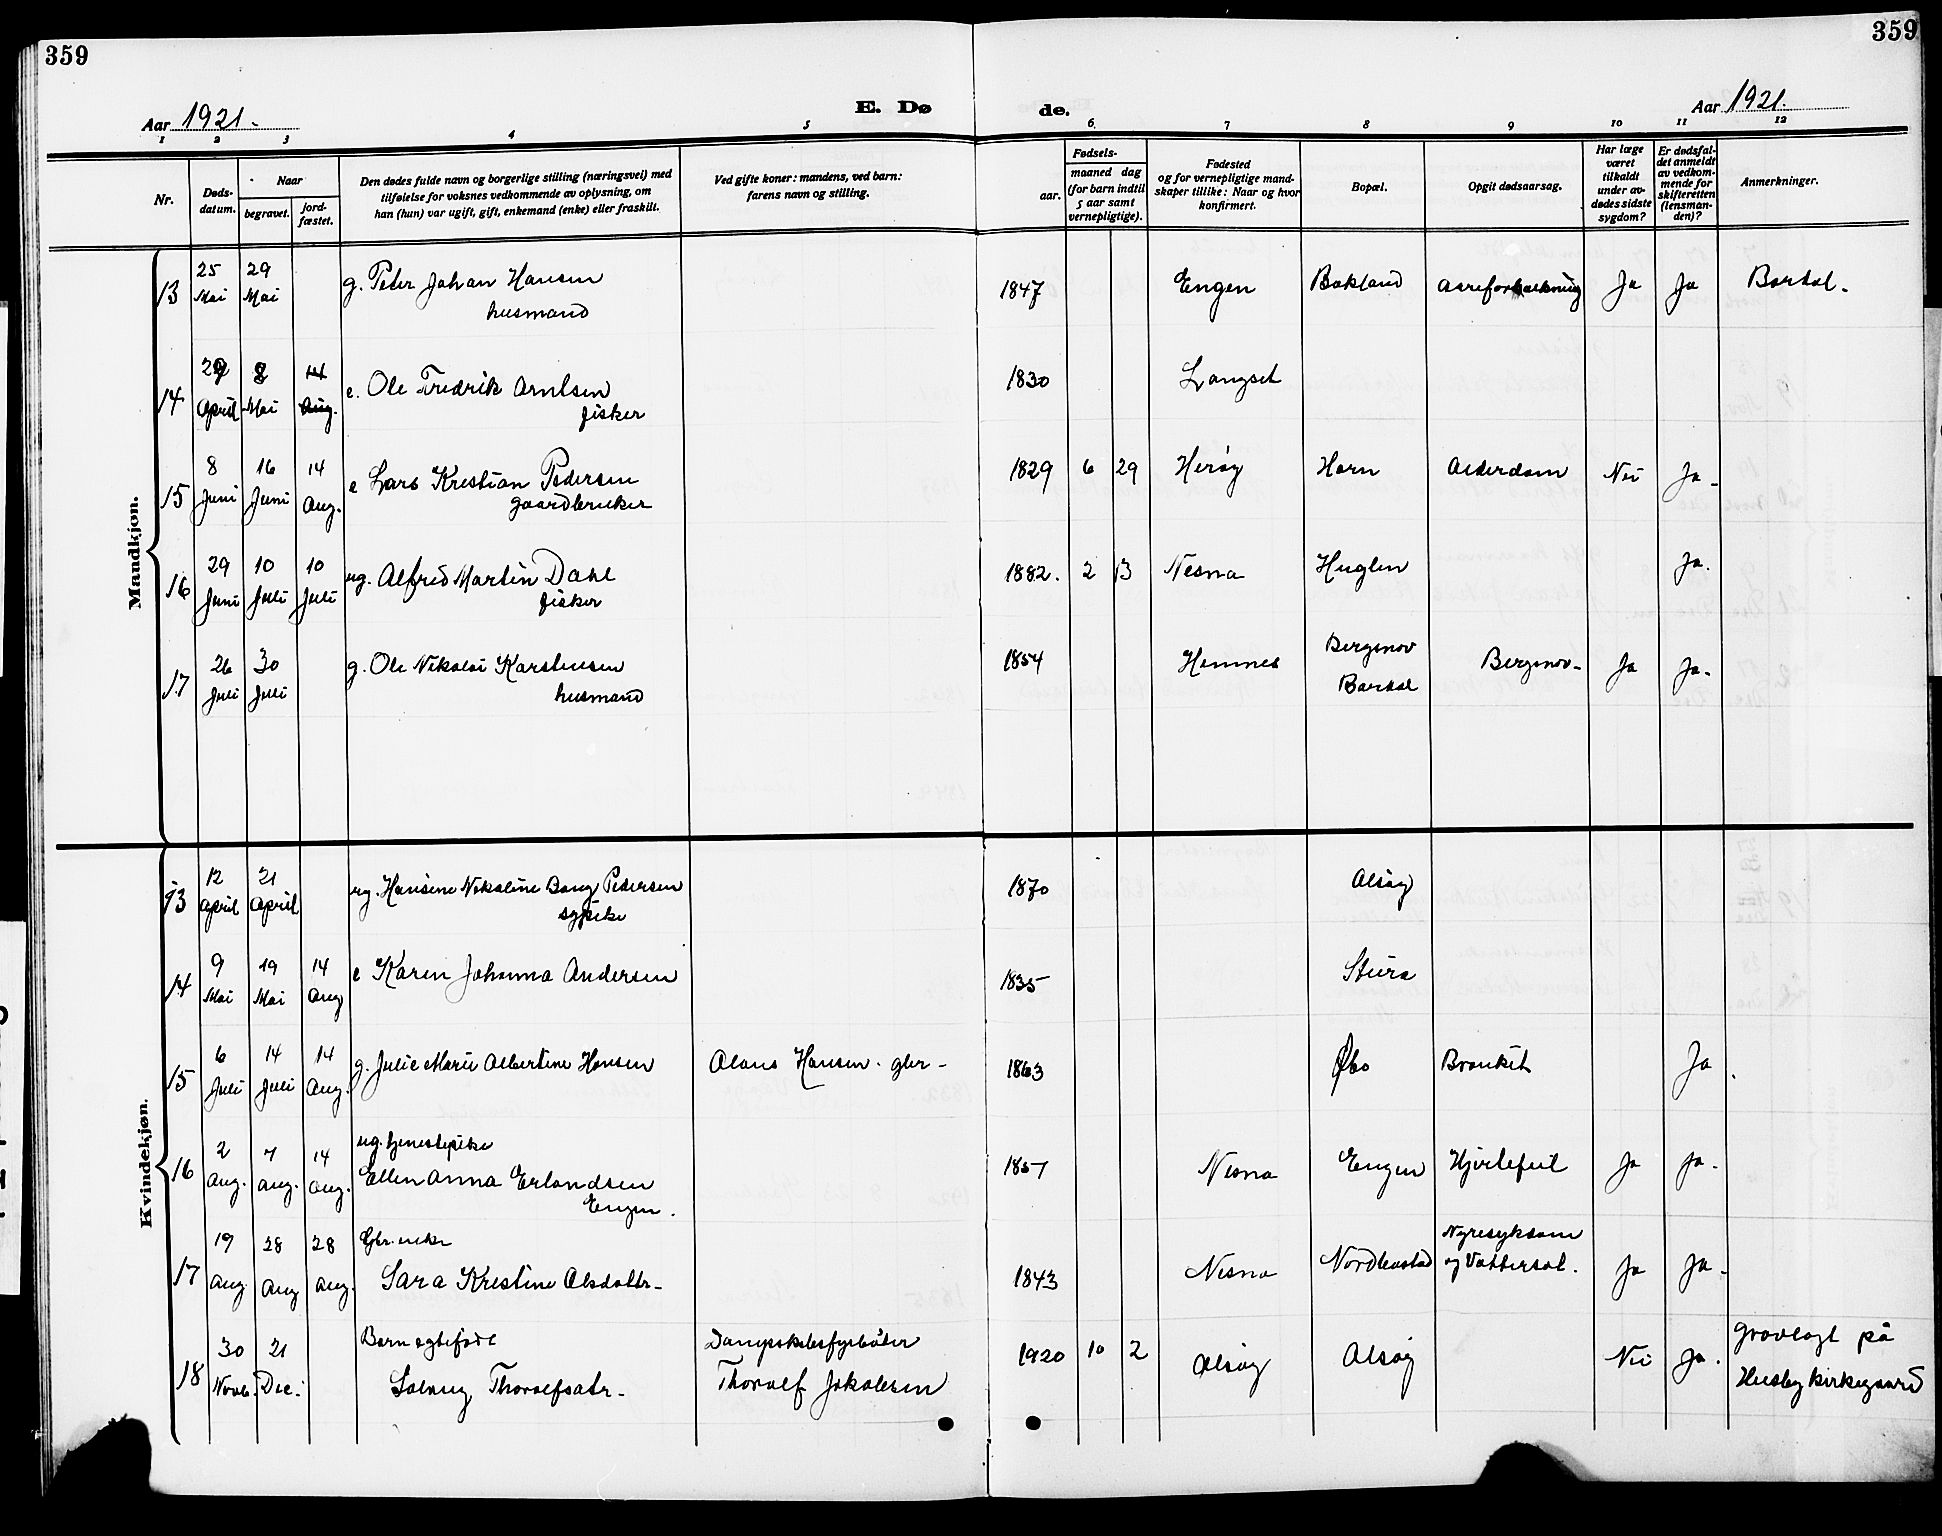 359
359
Aar 1921.
E. Dø
de.
Aar 1921.
1 2 3 4 5 6. 7 8 9 10 11 12
Nr.
Døds-
datum.
Naar
begravet.
jord-
fæstet.
Den dødes fulde navn og borgerlige stilling (næringsvei) med
tilføielse for voksnes vedkommende av oplysning, om
han (hun) var ugift, gift, enkemand (enke) eller fraskilt.
Ved gifte koner: mandens, ved barn:
farens navn og stilling.
Fødsels-
aar.
maaned dag
(for barn indtil
5 aar samt
vernepligtige).
Fødested
og for vernepligtige mand-
skaper tillike: Naar og hvor
konfirmert.
Bopæl.
Opgit dødsaarsag.
Har læge
været
tilkaldt
under av-
dødes sidste
sygdom?
Er dødsfal-
det anmeldt
av vedkom-
mende for
skifteretten
(lensman-
den)?
Anmerkninger.
Mandkjøn.
13 25 Mai 29 Mai g. Peter Johan Hansen 1847 Engen Bakland Aareforkalkning Ja Ja Bardal.
husmand
14 29 April 8 Mai 14 Aug. e. Ole Fredrik Arntsen 1830 Langset
fisker
15 8 Juni 16 Juni 14 Aug. e Lars Kristian Pedersen 1829 6 29 Herøy Horn Alderdom Nei Ja-
gaardbruker
16 29 Juni 10 Juli 10 Juli ug. Alfred Martin Dahl 1882. 2 13 Nesna Huglen Ja.
fisker
17 26 Juli 30 Juli g. Ole Nikolai Karstensen 1854 Hemnes Bergsnov Bardal Bergsnov- Ja Ja-
husmand
Kvindekjøn.
13 12 April 21 April ug. Hansine Nikoline Bang Pedersen 1870 Alsøy
sypike
14 9 Mai 19 Mai 14 Aug e Karen Johanna Andersen 1835 Stura
15 6 Juli 14 Juli 14 Aug. g. Julie Marie Albertine Hansen Olaus Hansen. gbr- 1863 Øbo Bronkit Ja.
16 2 Aug. 7 Aug. 14 Aug. ug. tjenestepike
Ellen Anna Erlandsen 1857 Nesna Engen Hjertefeil Ja Ja-
Engen.
17 19 Aug 28 Aug 28 Aug. Gbr. enke
Sara Kristine Olsdattr- 1843 Nesna Nordleastad Nyresyksom
og Vattersot. Ja Ja-
18 30 Novb. 21 Dec. Barn egtefødt Dampskibsfyrbøter
Solveig Thoralfsdtr- Thoralf Jakobsen 1920 10 2 Alsøy Alsøy Nei Ja. gravlagt på
Husby kirkegaard